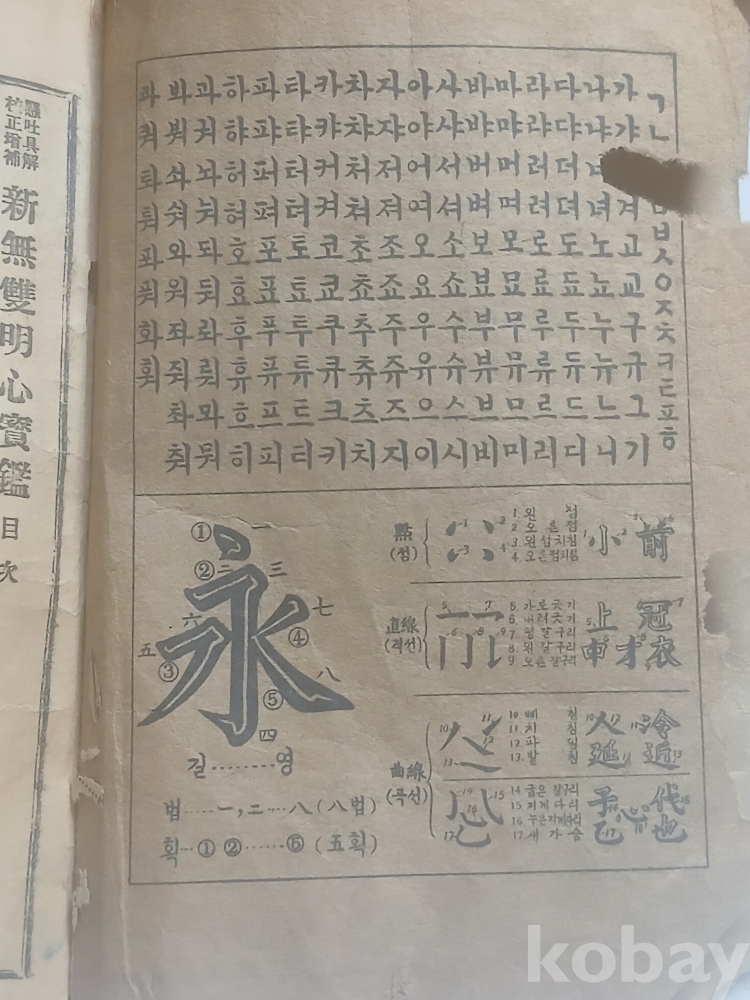 懸吐具解
校正增補
新無雙明心寶鑑
目次
ㄱ ㄴ ㅂ ㅅ ㅇ ㅈ ㅊ ㅋ ㅌ ㅍ ㅎ
가 갸 겨 고 교 구 규 그 기
나 냐 녀 노 뇨 누 뉴 느 니
다 댜 더 뎌 도 됴 두 듀 드 디
라 랴 러 려 로 료 루 류 르 리
마 먀 머 며 모 묘 무 뮤 므 미
바 뱌 버 벼 보 뵤 부 뷰 브 비
사 샤 서 셔 소 쇼 수 슈 스 시
아 야 어 여 오 요 우 유 으 이
자 쟈 저 져 조 죠 주 쥬 즈 지
차 챠 처 쳐 초 쵸 추 츄 츠 치
카 캬 커 켜 코 쿄 쿠 큐 크 키
타 탸 터 텨 토 툐 투 튜 트 티
파 퍄 퍼 펴 포 표 푸 퓨 프 피
하 햐 허 혀 호 효 후 휴 흐 히
과 궈 놔 눠 돠 둬 롸 뤄 뫄 뭐
봐 붜 솨 숴 와 워 좌 줘 촤 춰
콰 쿼 톼 퉈 퐈 풔 화 훠
永
① ② ③ ④ ⑤
一 二 三 四 五 六 七 八
길········영
법·····一,二····八(八법)
획····① ②······⑤ (五획)
點
(점)
1. 왼 점
2. 오른점
3. 왼섭치침
4. 오른점치침
小 前
直線
(직선)
5. 가로긋기
6. 내려긋기
7. 평갈구리
8. 왼갈구리
9. 오른갈구리
上 冠
申 才 衣
曲線
(곡선)
10. 삐침
11. 치침
12. 파임
13. 받침
人 冷
延 近
14. 굽은갈구리
15. 지게다리
16. 누은지게다리
17. 새가슴
予 代
己 心 也
kobay